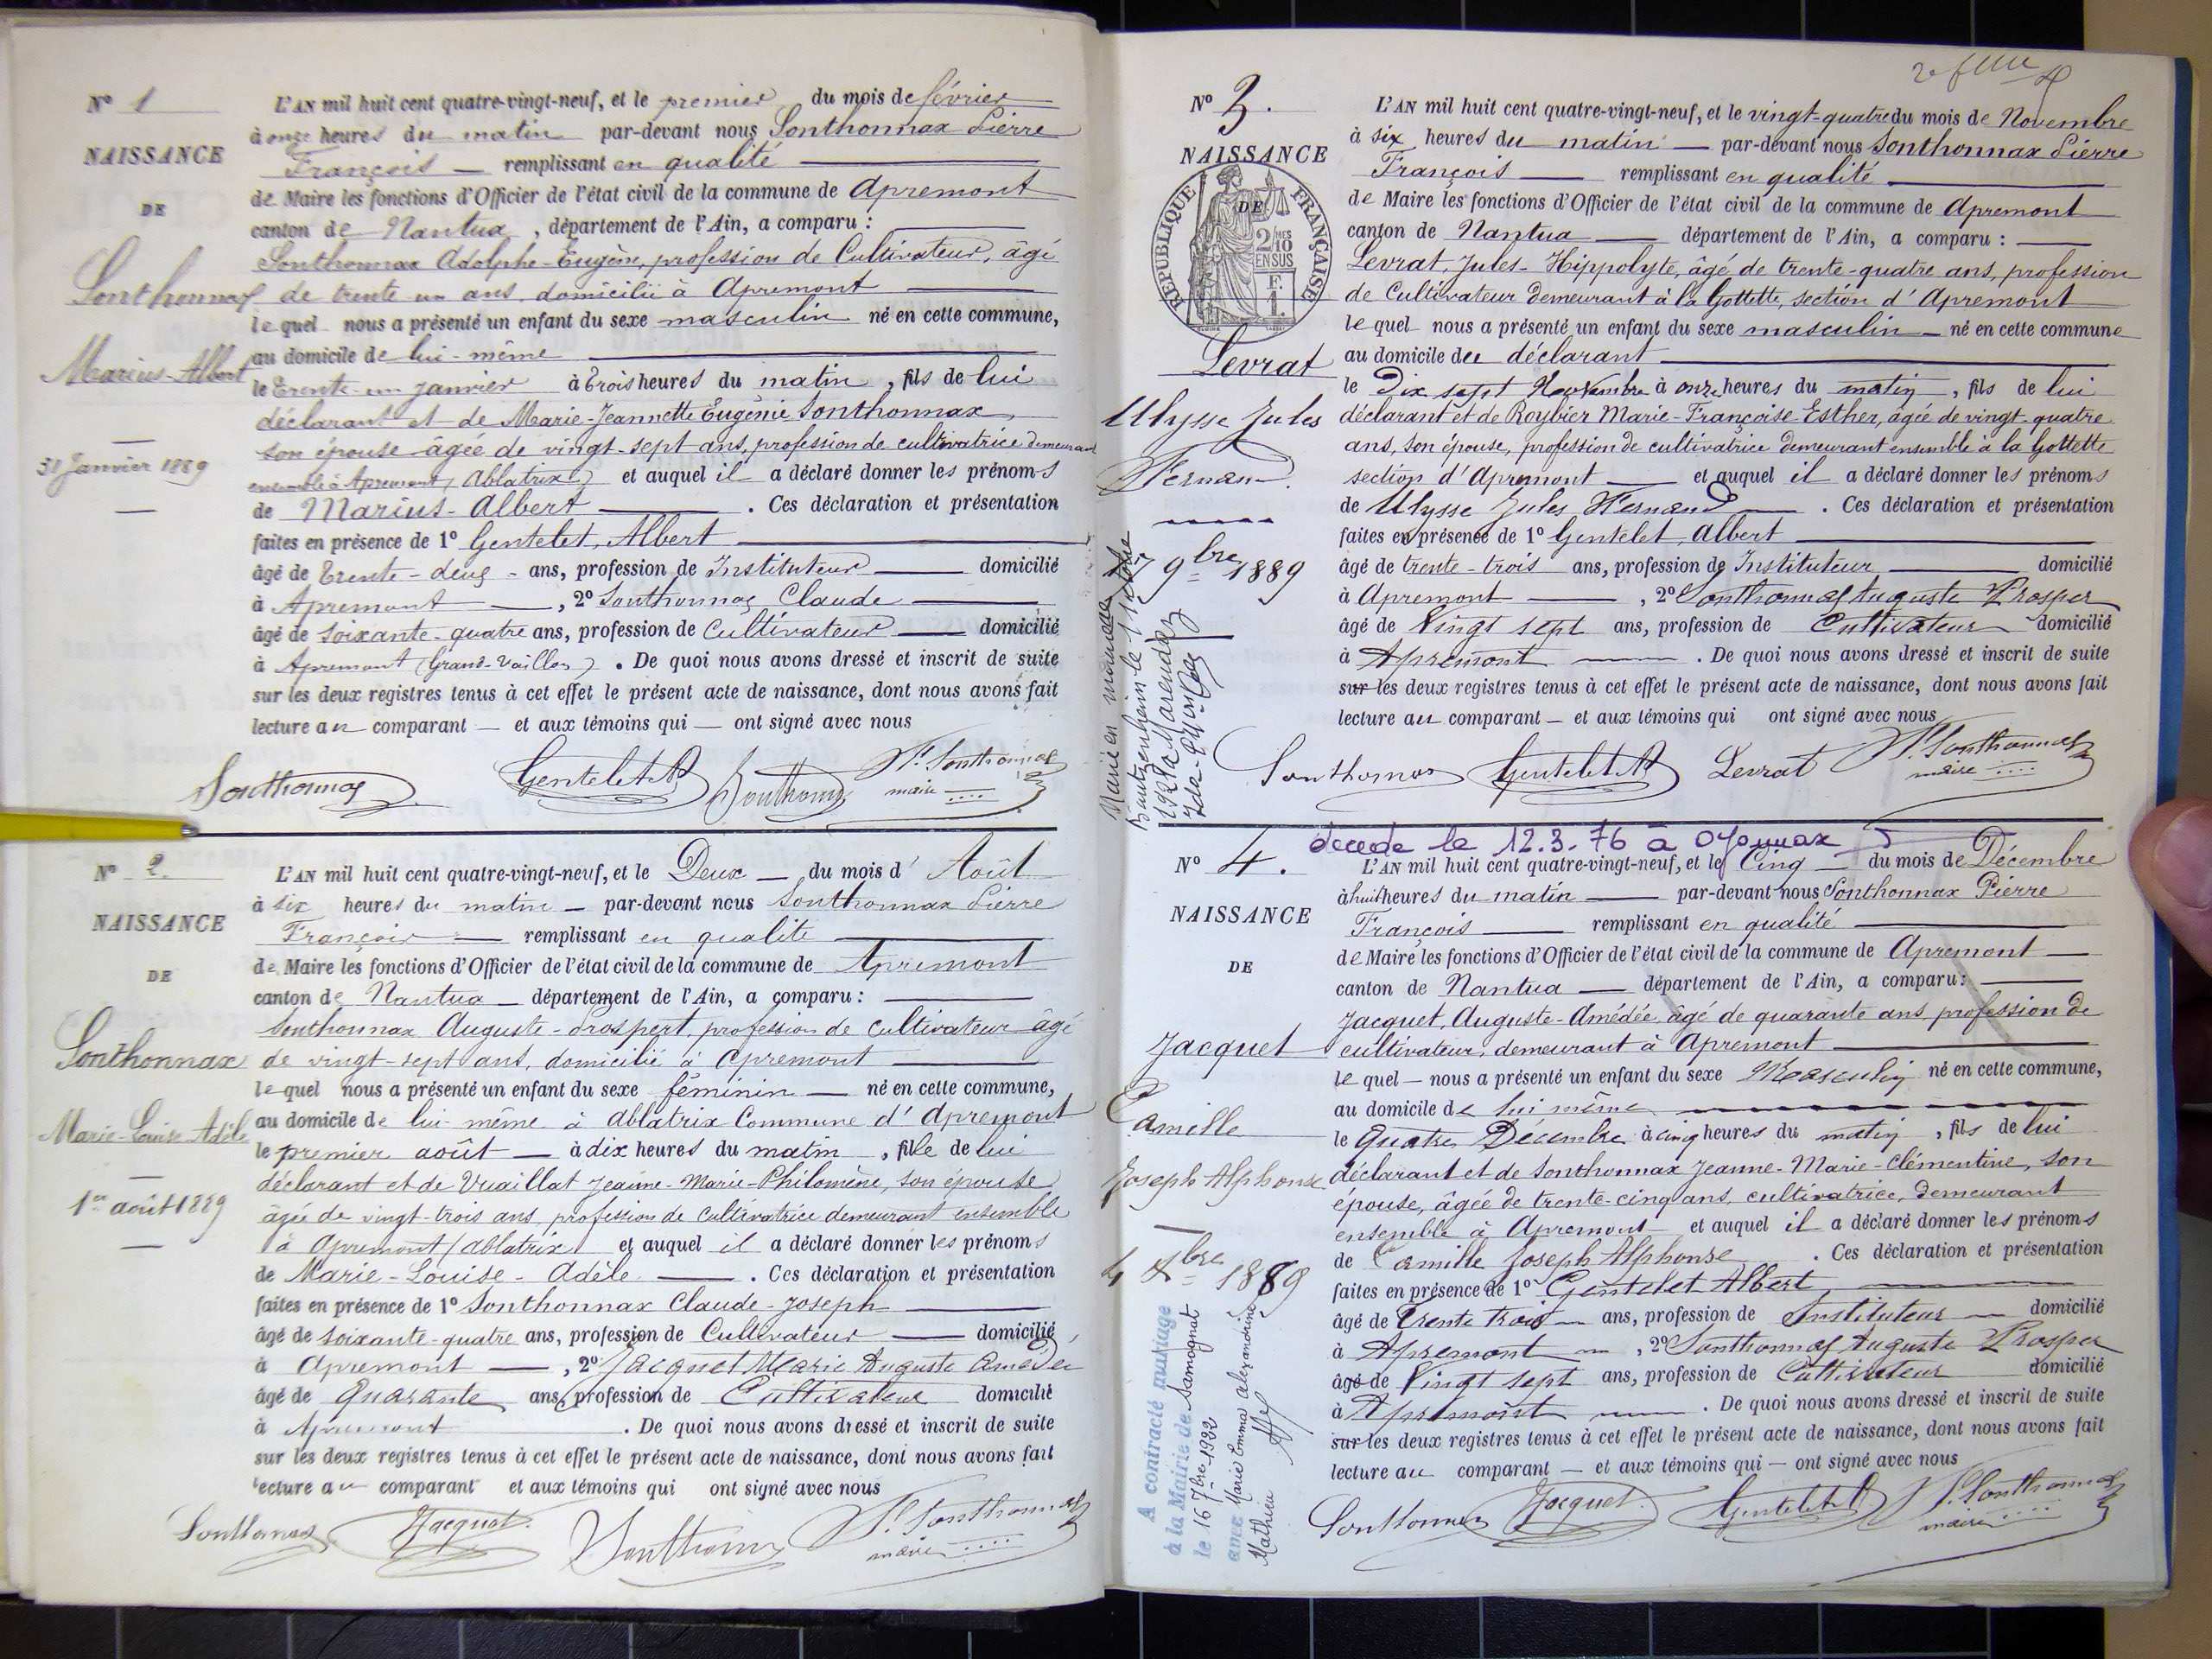 N° 1
NAISSANCE
DE
Sonthonnax
Marius-Albert
31 Janvier 1889
L'AN mil huit cent quatre-vingt-neuf, et le premier du mois de février
à onze heures du matin par-devant nous Sonthonnax Pierre
François remplissant en qualité
de Maire les fonctions d'Officier de l'état civil de la commune de Apremont
canton de Nantua, département de l'Ain, a comparu :
Sonthonnax Adolphe-Eugène, profession de Cultivateur, âgé
de trente un ans, domicilié à Apremont
lequel nous a présenté un enfant du sexe masculin né en cette commune,
au domicile de lui-même
le trente-un janvier à trois heures du matin, fils de lui
déclarant et de Marie-Jeannette Eugénie Sonthonnax,
son épouse âgée de vingt-sept ans, profession de cultivatrice demeurant
ensemble à Apremont (Ablatrix) et auquel il a déclaré donner les prénoms
de Marius-Albert. Ces déclaration et présentation
faites en présence de 1° Gentelet, Albert
âgé de trente-deux ans, profession de Instituteur domicilié
à Apremont, 2° Sonthonnax Claude
âgé de soixante-quatre ans, profession de Cultivateur domicilié
à Apremont (Grand-Vaillon). De quoi nous avons dressé et inscrit de suite
sur les deux registres tenus à cet effet le présent acte de naissance, dont nous avons fait
lecture au comparant et aux témoins qui ont signé avec nous
Sonthonnax Gentelet A Sonthonnax P. Sonthonnax
maire
N° 2.
NAISSANCE
DE
Sonthonnax
Marie-Louise Adèle
1er août 1889
L'AN mil huit cent quatre-vingt-neuf, et le Deux du mois d' Août
à six heures du matin par-devant nous Sonthonnax Pierre
François remplissant en qualité
de Maire les fonctions d'Officier de l'état civil de la commune de Apremont
canton de Nantua département de l'Ain, a comparu :
Sonthonnax Auguste-Prospert, profession de cultivateur âgé
de vingt-sept ans, domicilié à Apremont
lequel nous a présenté un enfant du sexe féminin né en cette commune,
au domicile de lui même à Ablatrix Commune d'Apremont
le premier août à dix heures du matin, fille de lui
déclarant et de Vuaillat Jeanne-Marie-Philomène, son épouse
âgée de vingt-trois ans, profession de cultivatrice demeurant ensemble
à Apremont (Ablatrix) et auquel il a déclaré donner les prénoms
de Marie-Louise-Adèle. Ces déclaration et présentation
faites en présence de 1° Sonthonnax Claude-Joseph
âgé de soixante-quatre ans, profession de Cultivateur domicilié
à Apremont, 2° Jacquet Marie Auguste Amédée
âgé de Quarante ans, profession de Cultivateur domicilié
à Apremont. De quoi nous avons dressé et inscrit de suite
sur les deux registres tenus à cet effet le présent acte de naissance, dont nous avons fait
lecture au comparant et aux témoins qui ont signé avec nous
Sonthonnax Jacquet Sonthonnax P. Sonthonnax
maire
N° 3.
NAISSANCE
DE
REPUBLIQUE FRANÇAISE
2/10
EN SUS
F.
1.
Levrat
Ulysse Jules
Fernand.
17 9bre 1889
L'AN mil huit cent quatre-vingt-neuf, et le vingt-quatre du mois de Novembre
à six heures du matin par-devant nous Sonthonnax Pierre
François remplissant en qualité
de Maire les fonctions d'Officier de l'état civil de la commune de Apremont
canton de Nantua département de l'Ain, a comparu :
Levrat, Jules-Hippolyte, âgé de trente-quatre ans, profession
de Cultivateur demeurant à la Gottette, section d'Apremont
lequel nous a présenté un enfant du sexe masculin né en cette commune
au domicile du déclarant
le Dix sept Novembre à onze heures du matin, fils de lui
déclarant et de Roybier Marie-Françoise-Esther, âgée de vingt-quatre
ans, son épouse, profession de cultivatrice demeurant ensemble à la Gottette
section d'Apremont et auquel il a déclaré donner les prénoms
de Ulysse Jules Fernand. Ces déclaration et présentation
faites en présence de 1° Gentelet, Albert
âgé de trente-trois ans, profession de Instituteur domicilié
à Apremont, 2° Sonthonnax Auguste Prosper
âgé de Vingt sept ans, profession de Cultivateur domicilié
à Apremont. De quoi nous avons dressé et inscrit de suite
sur les deux registres tenus à cet effet le présent acte de naissance, dont nous avons fait
lecture au comparant et aux témoins qui ont signé avec nous
Sonthonnax Gentelet A Levrat P. Sonthonnax
maire
décédé le 12.3.76 à Oyonnax
N° 4.
NAISSANCE
DE
Jacquet
Camille
Joseph Alphonse
4 Xbre 1889
A contracté mariage
à la Mairie de Samognat
le 16 7bre 1922
avec Marie Emma Alexandrine
Mathieu
L'AN mil huit cent quatre-vingt-neuf, et le Cinq du mois de Décembre
à huit heures du matin par-devant nous Sonthonnax Pierre
François remplissant en qualité
de Maire les fonctions d'Officier de l'état civil de la commune de Apremont
canton de Nantua département de l'Ain, a comparu :
Jacquet, Auguste-Amédée, âgé de quarante ans, profession de
cultivateur, demeurant à Apremont
lequel nous a présenté un enfant du sexe Masculin né en cette commune,
au domicile de lui même
le Quatre Décembre à cinq heures du matin, fils de lui
déclarant et de Sonthonnax Jeanne-Marie-Clémentine, son
épouse, âgée de trente-cinq ans, cultivatrice, demeurant
ensemble à Apremont et auquel il a déclaré donner les prénoms
de Camille Joseph Alphonse. Ces déclaration et présentation
faites en présence de 1° Gentelet Albert
âgé de trente trois ans, profession de Instituteur domicilié
à Apremont, 2° Sonthonnax Auguste Prosper
âgé de Vingt sept ans, profession de Cultivateur domicilié
à Apremont. De quoi nous avons dressé et inscrit de suite
sur les deux registres tenus à cet effet le présent acte de naissance, dont nous avons fait
lecture au comparant et aux témoins qui ont signé avec nous
Sonthonnax Jacquet Gentelet A P. Sonthonnax
maire